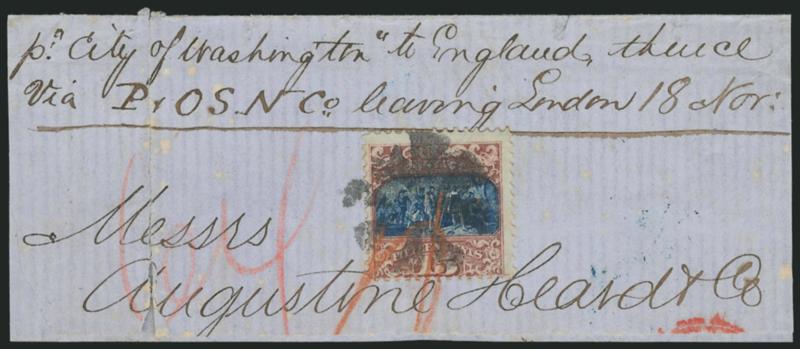 pr "City of Washington" to England, thence
Via P & O S. N Co. leaving London 18 Nov:
Messrs
Augustine Heard & Co